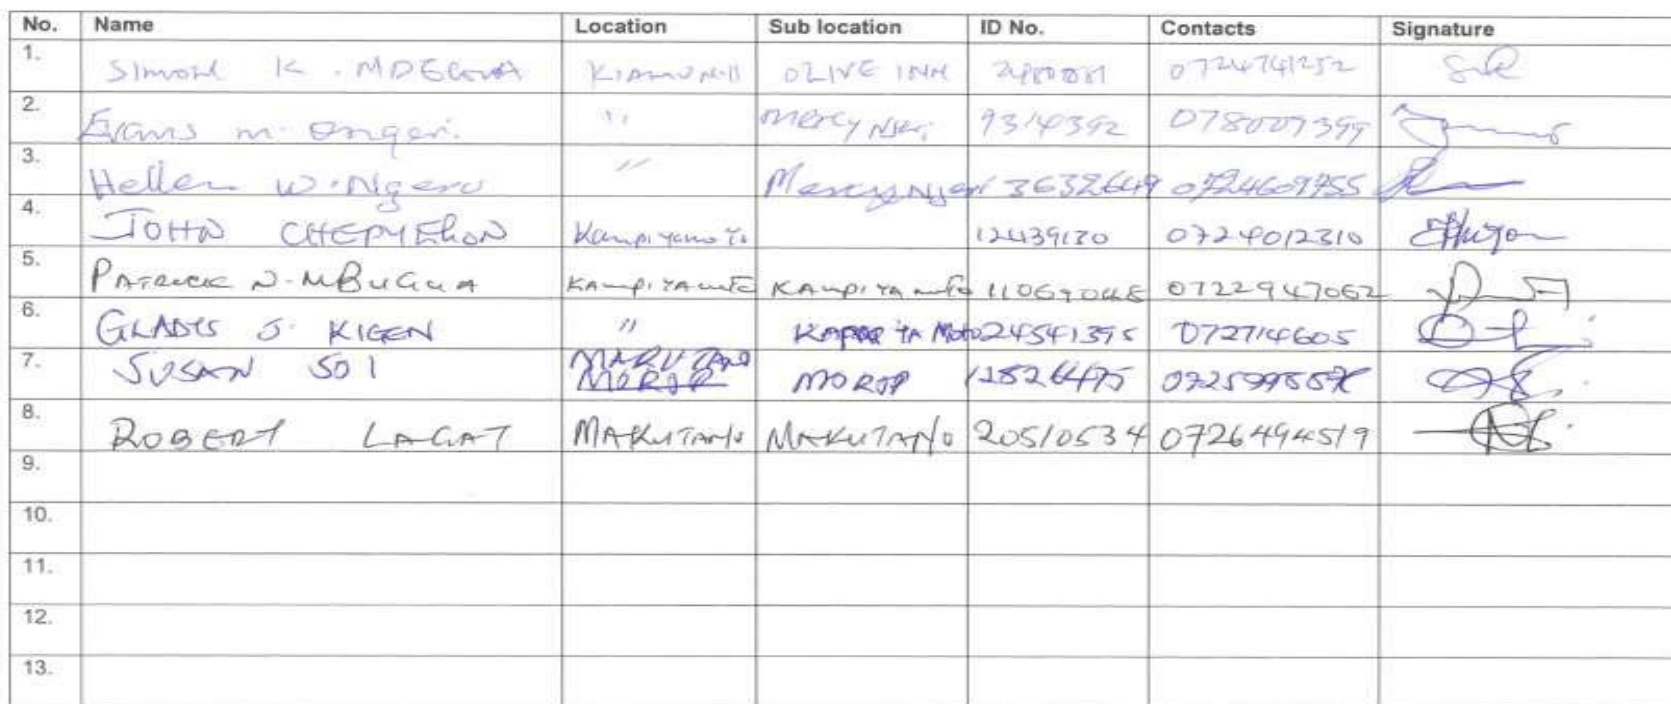 No. Name Location Sub location ID No. Contacts Signature
1. Simon K. MDEGWA KIAMUNYI OLIVE INN 0724741252
2. Evans m. Ongeri. " MERCY NJERI 9314392 078007399
3. Hellen W. Ngeru " Mercy Njeri 3632649 0724609755
4. JOHN CHEPYEGON Kampi ya moto 12439130 0724012310
5. PATRICK N. MBUGUA KAMPI YA MOTO KAMPI YA MOTO 11069048 0722947062
6. GLADYS J. KIGEN " YA Moto 24541395 072714605
7. SUSAN SOI MAKUTANO MOROP MOROP
8. ROBERT LAGAT MAKUTANO MAKUTANO 20510534 0726494519
9.
10.
11.
12.
13.